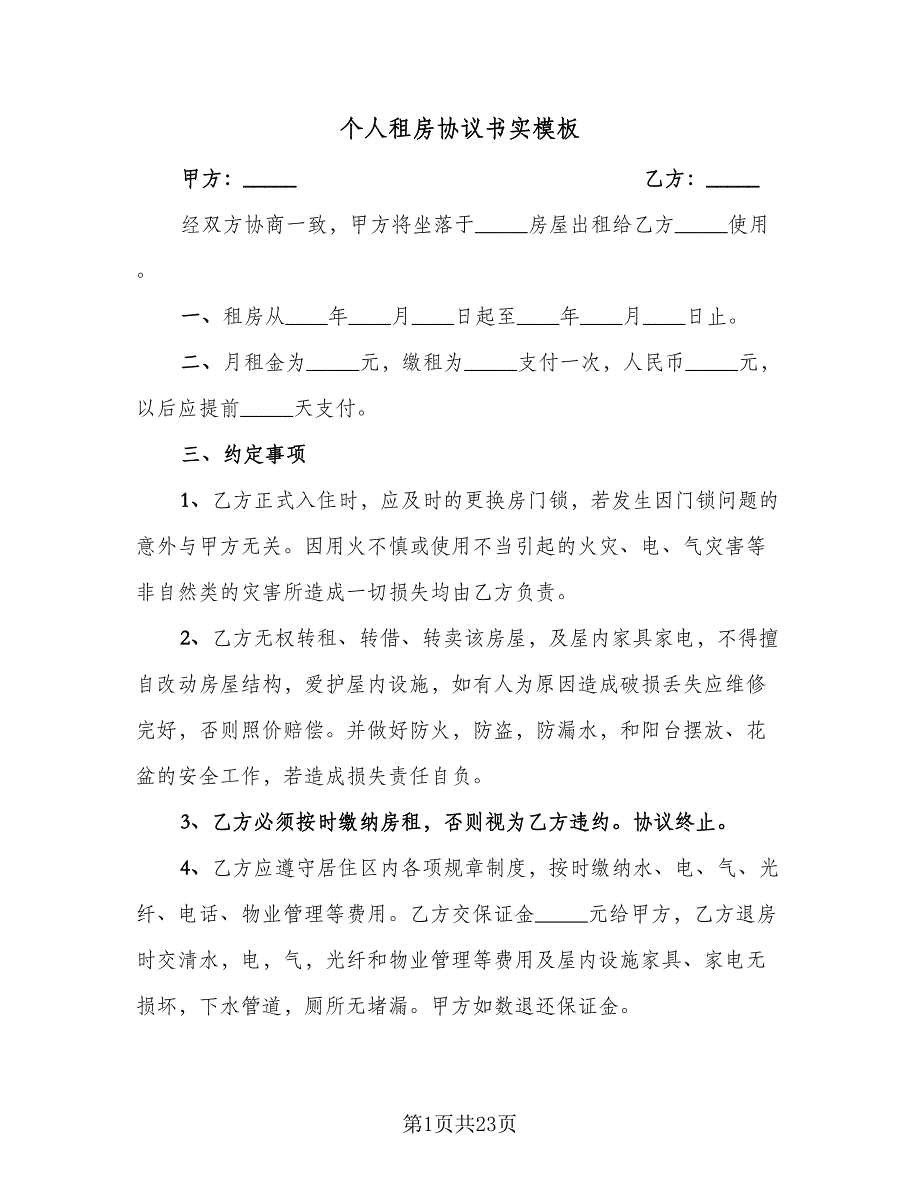 个人租房协议书实模板
甲方：_____ 乙方：_____
经双方协商一致，甲方将坐落于_____房屋出租给乙方_____使用
。
一、租房从____年____月____日起至____年____月____日止。
二、月租金为_____元，缴租为_____支付一次，人民币_____元，
以后应提前_____天支付。
三、约定事项
1、乙方正式入住时，应及时的更换房门锁，若发生因门锁问题的
意外与甲方无关。因用火不慎或使用不当引起的火灾、电、气灾害等
非自然类的灾害所造成一切损失均由乙方负责。
2、乙方无权转租、转借、转卖该房屋，及屋内家具家电，不得擅
自改动房屋结构，爱护屋内设施，如有人为原因造成破损丢失应维修
完好，否则照价赔偿。并做好防火，防盗，防漏水，和阳台摆放、花
盆的安全工作，若造成损失责任自负。
3、乙方必须按时缴纳房租，否则视为乙方违约。协议终止。
4、乙方应遵守居住区内各项规章制度，按时缴纳水、电、气、光
纤、电话、物业管理等费用。乙方交保证金_____元给甲方，乙方退房
时交清水，电，气，光纤和物业管理等费用及屋内设施家具、家电无
损坏，下水管道，厕所无堵漏。甲方如数退还保证金。
第1页共23页